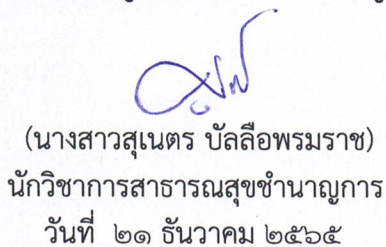 (นางสาวสุเนตร บัลลือพรมราช)
นักวิชาการสาธารณสุขชำนาญการ
วันที่ ๒๑ ธันวาคม ๒๕๖๕